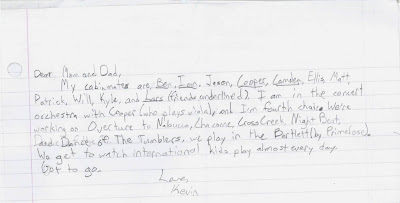 Dear Mom and Dad,
My cabinmates are, Ben, Ian, Jason, Cooper, Camden, Ellis, Matt,
Patrick, Will, Kyle, and Lars (friends underlined). I am in the concert
orchestra with Cooper (who plays viola), and I'm fourth chair. We're
working on Overture to Nabucco, Chaconne, Cross Creek, Night Beat,
and Dance of The Tumblers, we play in the Bartlett (by Primeloan).
We get to watch international kids play almost every day.
Got to go.
Love,
Kevin